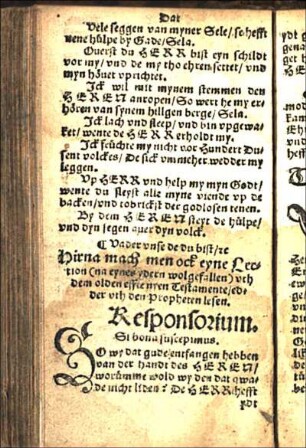 Dat
Vele seggen van myner Sele/ so hefft
nene hülpe by Gade/Sela.
Ouerst du HERR bist eyn schildt
vor my/ vnd de my tho ehren settet/ vnd
myn höuet vprichtet.
Jck wil mit mynem stemmen den
HEREN anropen/ So wert he my er-
hören van synem hilligen berge/ Sela.
Jck lach vnd sleep/ vnd bin vpgewa-
ket/ wente de HERR erholdt my.
Jck früchte my nicht vor hundert Du-
sent volckes/ De sick vmmeher wedder my
leggen.
Vp HERR vnd help my myn Godt/
wente du sleyst alle myne viende vp de
backen/ vnd tobrickst der godlosen tenen.
By dem HEREN steyt de hülpe/
vnd dyn segen auer dyn volck.
¶ Vader vnse de du bist/ ꝛc
Hirna mach men ock eyne Lec-
tion (na eynes ydern wolgefallen) vth
dem olden effte nyen Testamente/ ed-
der vth den Propheten lesen.
Responsorium.
Si bona suscepimus.
SO wy dat gude entfangen hebben
van der handt des HEREN/
worümme wold wy den dat qwa-
de nicht liden? De HERR hefft
ydt